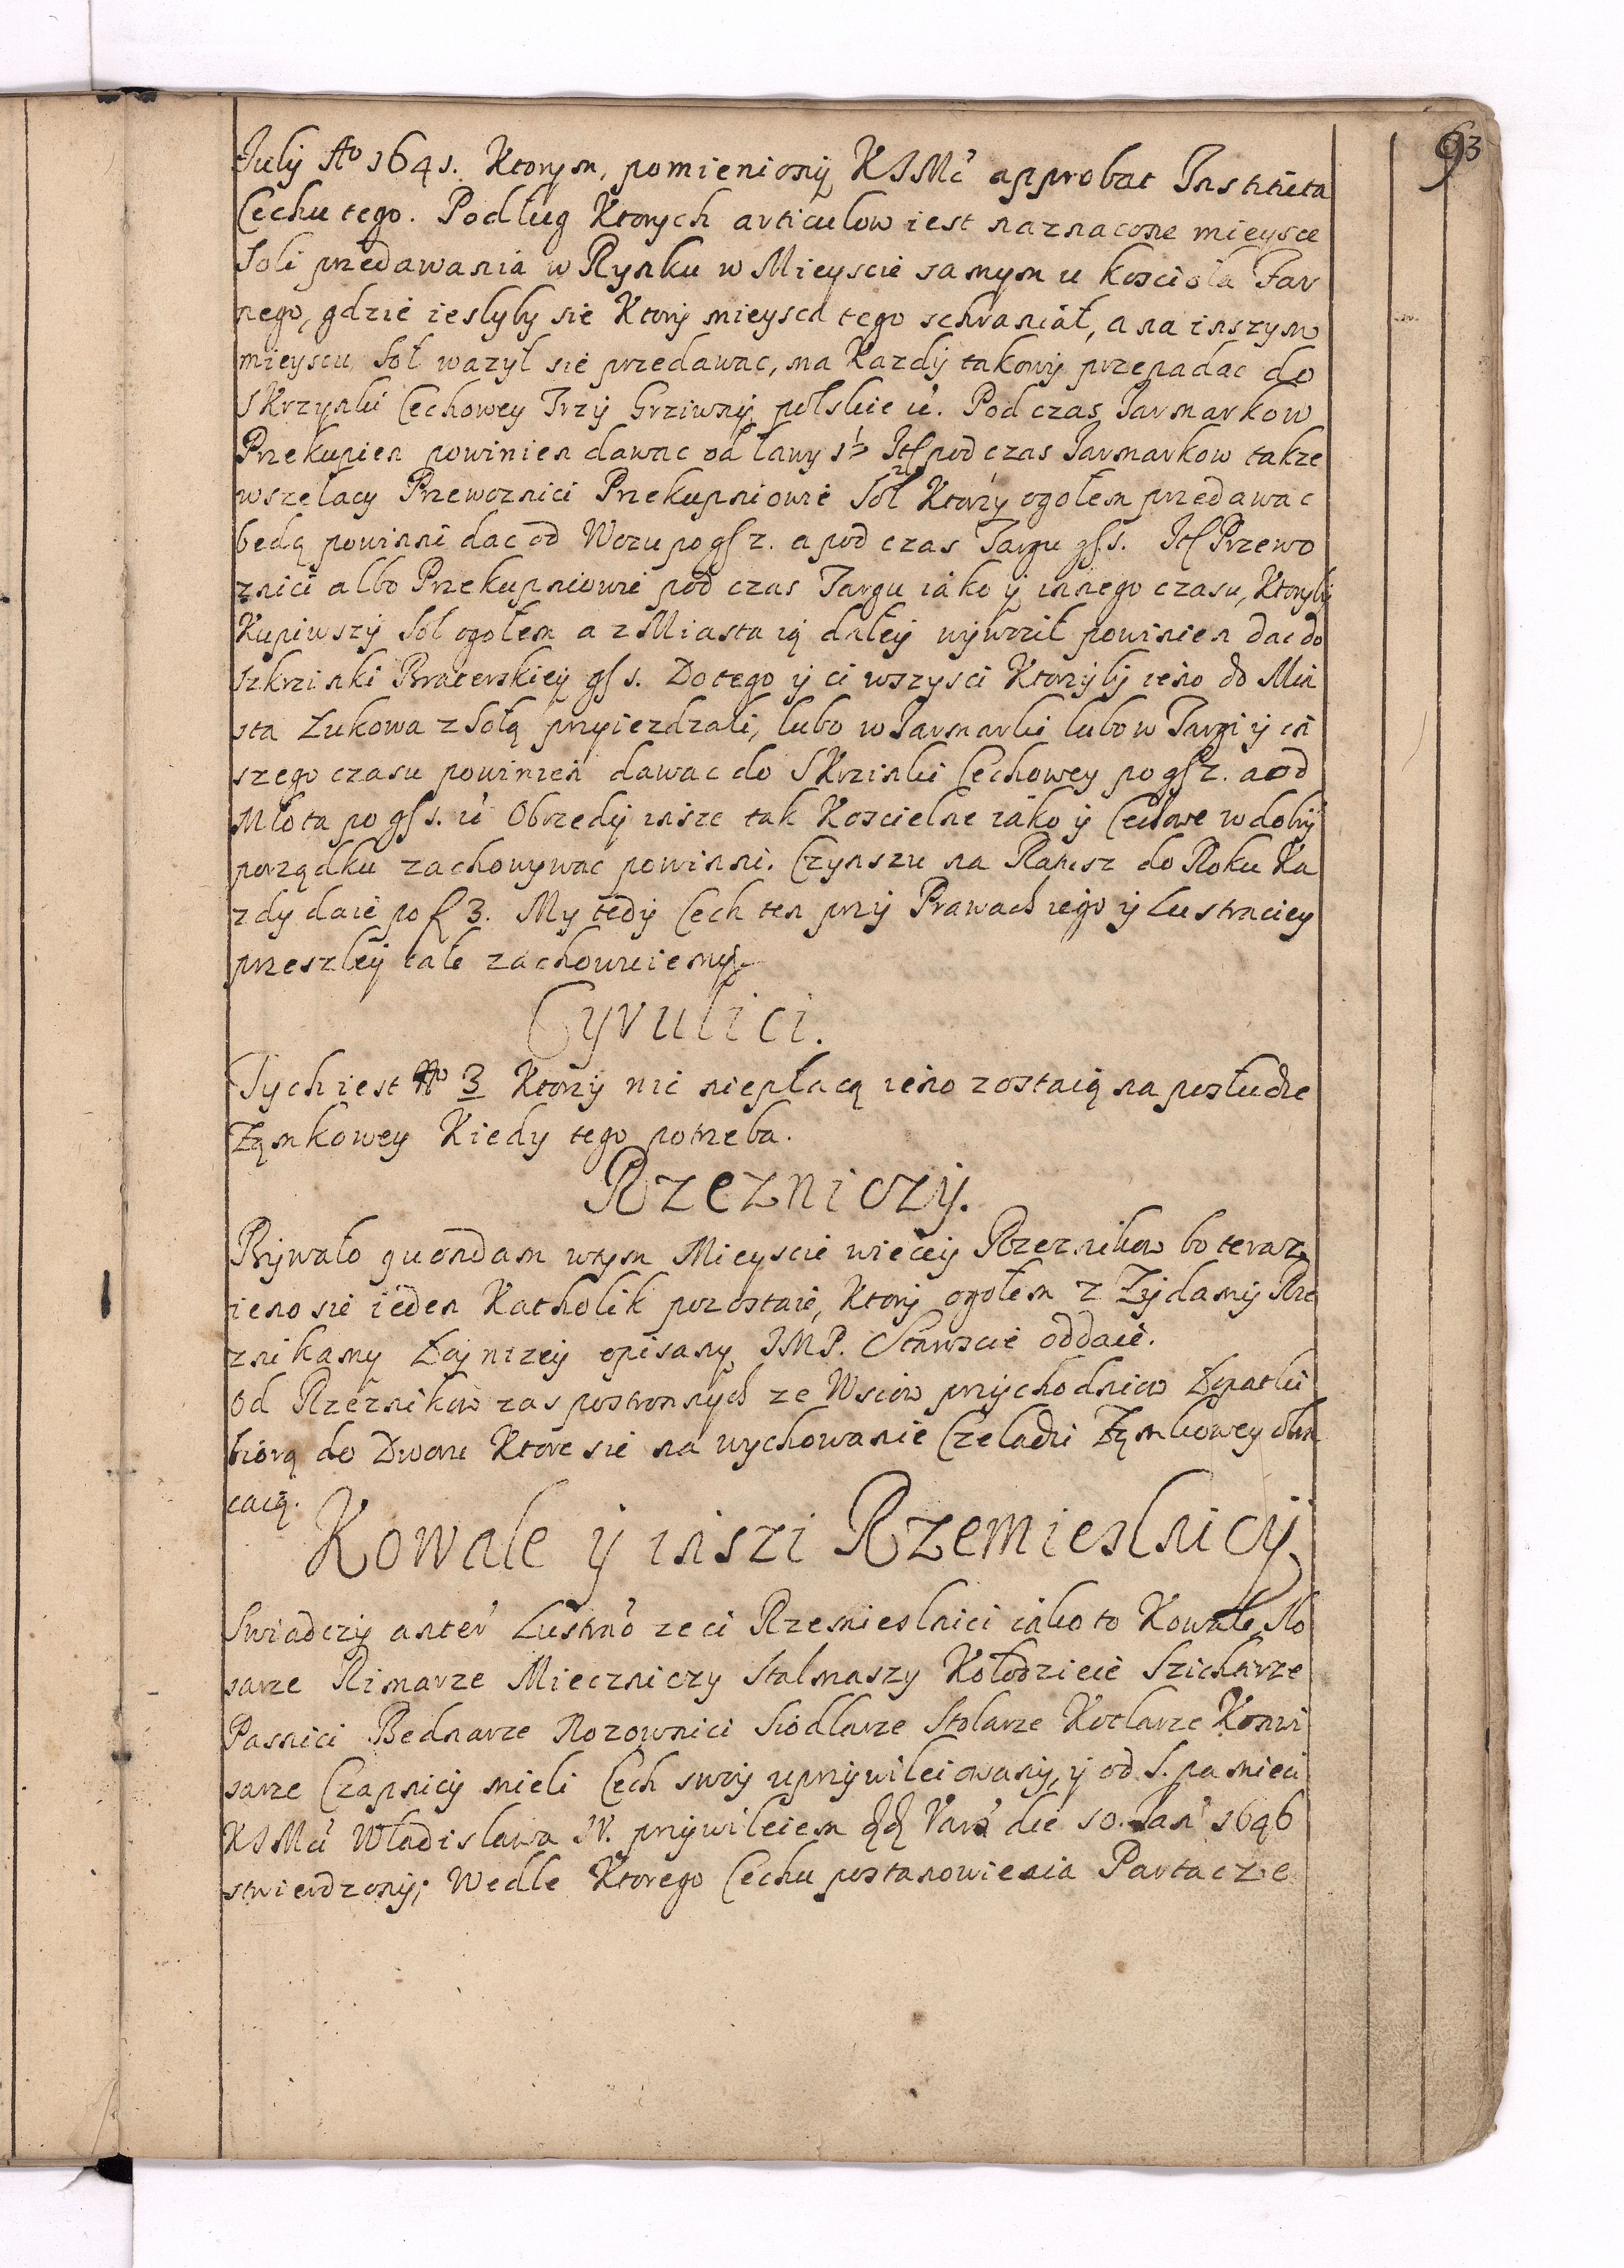 63
July Ao 1641. Ktorym, pomieniony KJMć approbat Instituta
Cechu tego. Podług Ktorych articulow iest naznacone mieysce
Soli przedawania w Rynku w Mieyscie samym u kosciola Far
nego, gdzie iesłyby sie Ktory mieysca tego schraniał, a na inszym
mieyscu Sol wazył sie przedawac, ma Kazdy takowy przepadac do
Skrzynki Cechowey Trzy Grziwny polskie. Pod czas Jarmarkow
Przekupien powinien dawac od ławy pod czas Jarmarkow takze
wszelacy Przewoznici Przekupniowie Sol Ktorzy ogołem przedawac
bedą powinni dac od Wozu po gſ 2. a pod czas Targu gſ 1. Przewo
znici albo Przekupniowie pod czas Targu iako y innego czasu, Ktoryby
Kupiwszy Sol ogołem a z Miasta ią daley wywoził powinien dac do
Szkrzinki Braterskiey gſ 1. Do tego y ci wszysci Ktorzyby ieno do Mia
sta Lukowa z Solą przyiezdzali, lubo w Jarmarki lubo w Targi y in
szego czasu powinien dawac do Skrzinki Cechowey po gſ 2. a od
Młota po gſ 1. Obrzedy insze tak Koscielne iako y Cechowe w dobry
porządku zachowywac powinni. Czynszu na Ratusz do Roku Ka
zdy daie po f 3. My tedy Cech ten przy Prawach iego y Lustraciey
przeszley cale zachowuiemy.
Cyrulici.
Tych iest No 3 Ktorzy nic niepłacą ieno zostaią na posłudze
Zamkowey Kiedy tego potrzeba.
Rzezniczy.
Bywało quondam w tym Mieyscie wiecey Rzeznikow bo teraz
ieno sie ieden Katholik pozostaie, Ktory ogołem z Zydamy Rze
znikamy Łoy nizey opisany JMP. Staroscie oddaie.
Od Rzeznikow zas postronnych ze Wsiow przychodniow Łopatki
biorą do Dworu Ktore sie na wychowanie Czeladzi Zamkowey obra
caią.
Kowale y inszi Rzemieslnicy
Swiadczy anter Lustro ze ci Rzemieslnici iako to Kowale, Slo
sarze Rimarze Mieczniczy Stalmaszy Kołodzieie Szicharze
Pasnici Bednarze Nozownici Siodlarze Stolarze Kotlarze Konwi
sarze Czapnicy mieli Cech swoy uprzywileiowany, y od S. pamieci
KJMci Wladislawa IV. przywileiem die 10. Jan 1646
stwierdzony; Wedle Ktorego Cechu postanowienia Partacze